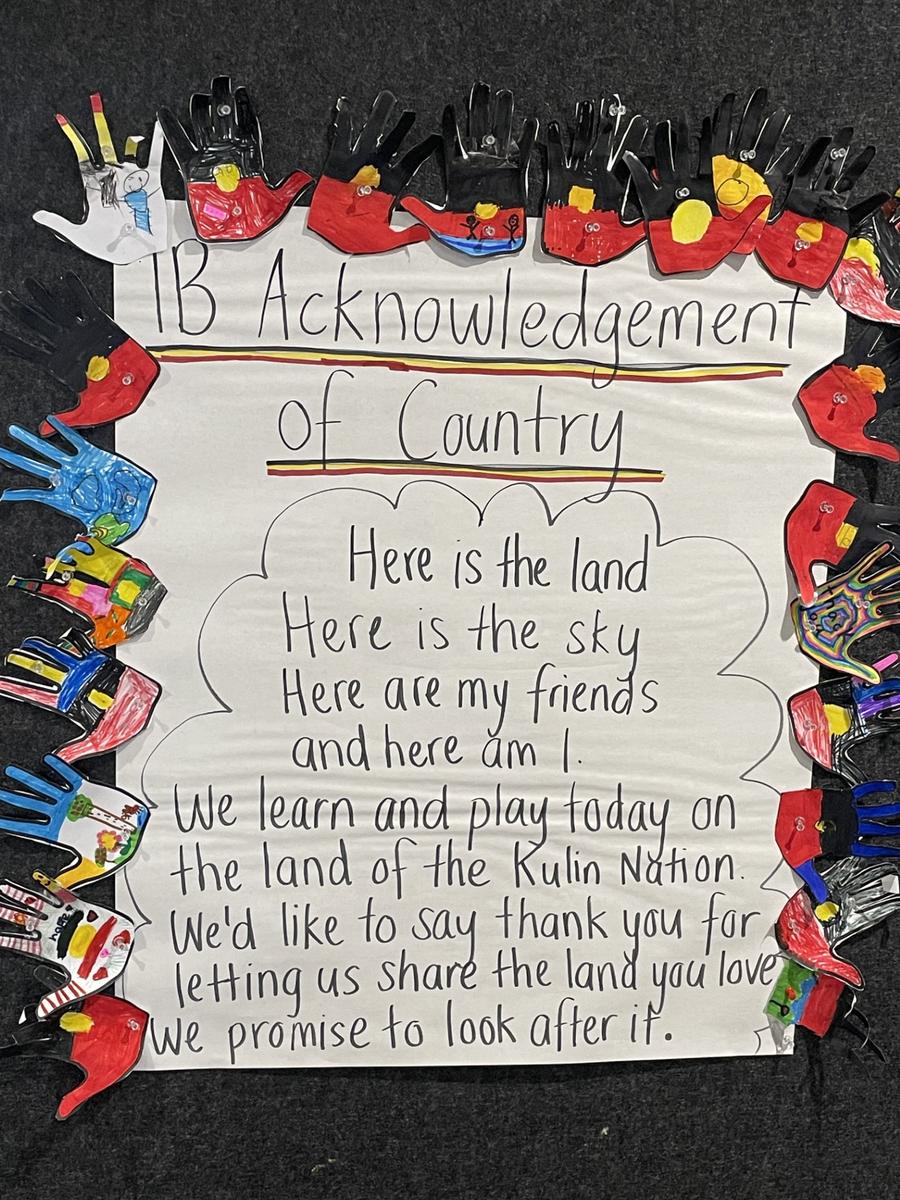 1B Acknowledgement
of Country
Here is the land
Here is the sky
Here are my friends
and here am I.
We learn and play today on
the land of the Kulin Nation.
We'd like to say thank you for
letting us share the land you love
We promise to look after it.